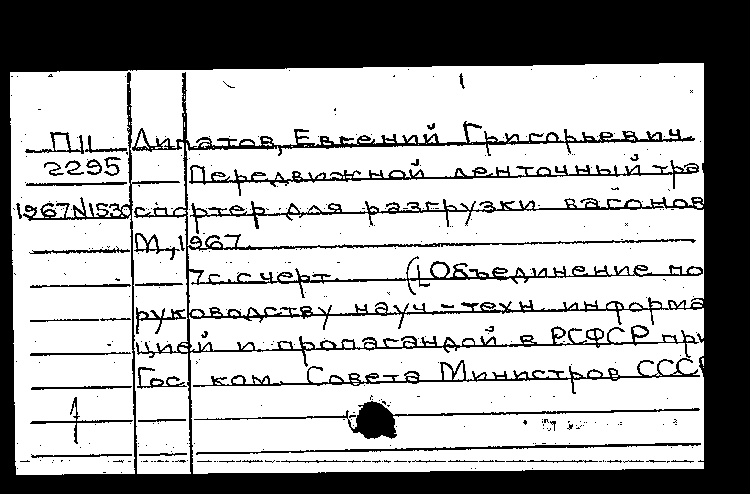 П11 Липатов, Евгений Григорьевич.
2295 Передвижной ленточный тран
1967N1530 спортер для разгрузки вагонов
М., 1967.
7с. с черт. (Объединение по
руководству науч.-техн. информа
цией и пропагандой в РСФСР при
Гос. ком. Совета Министров СССР